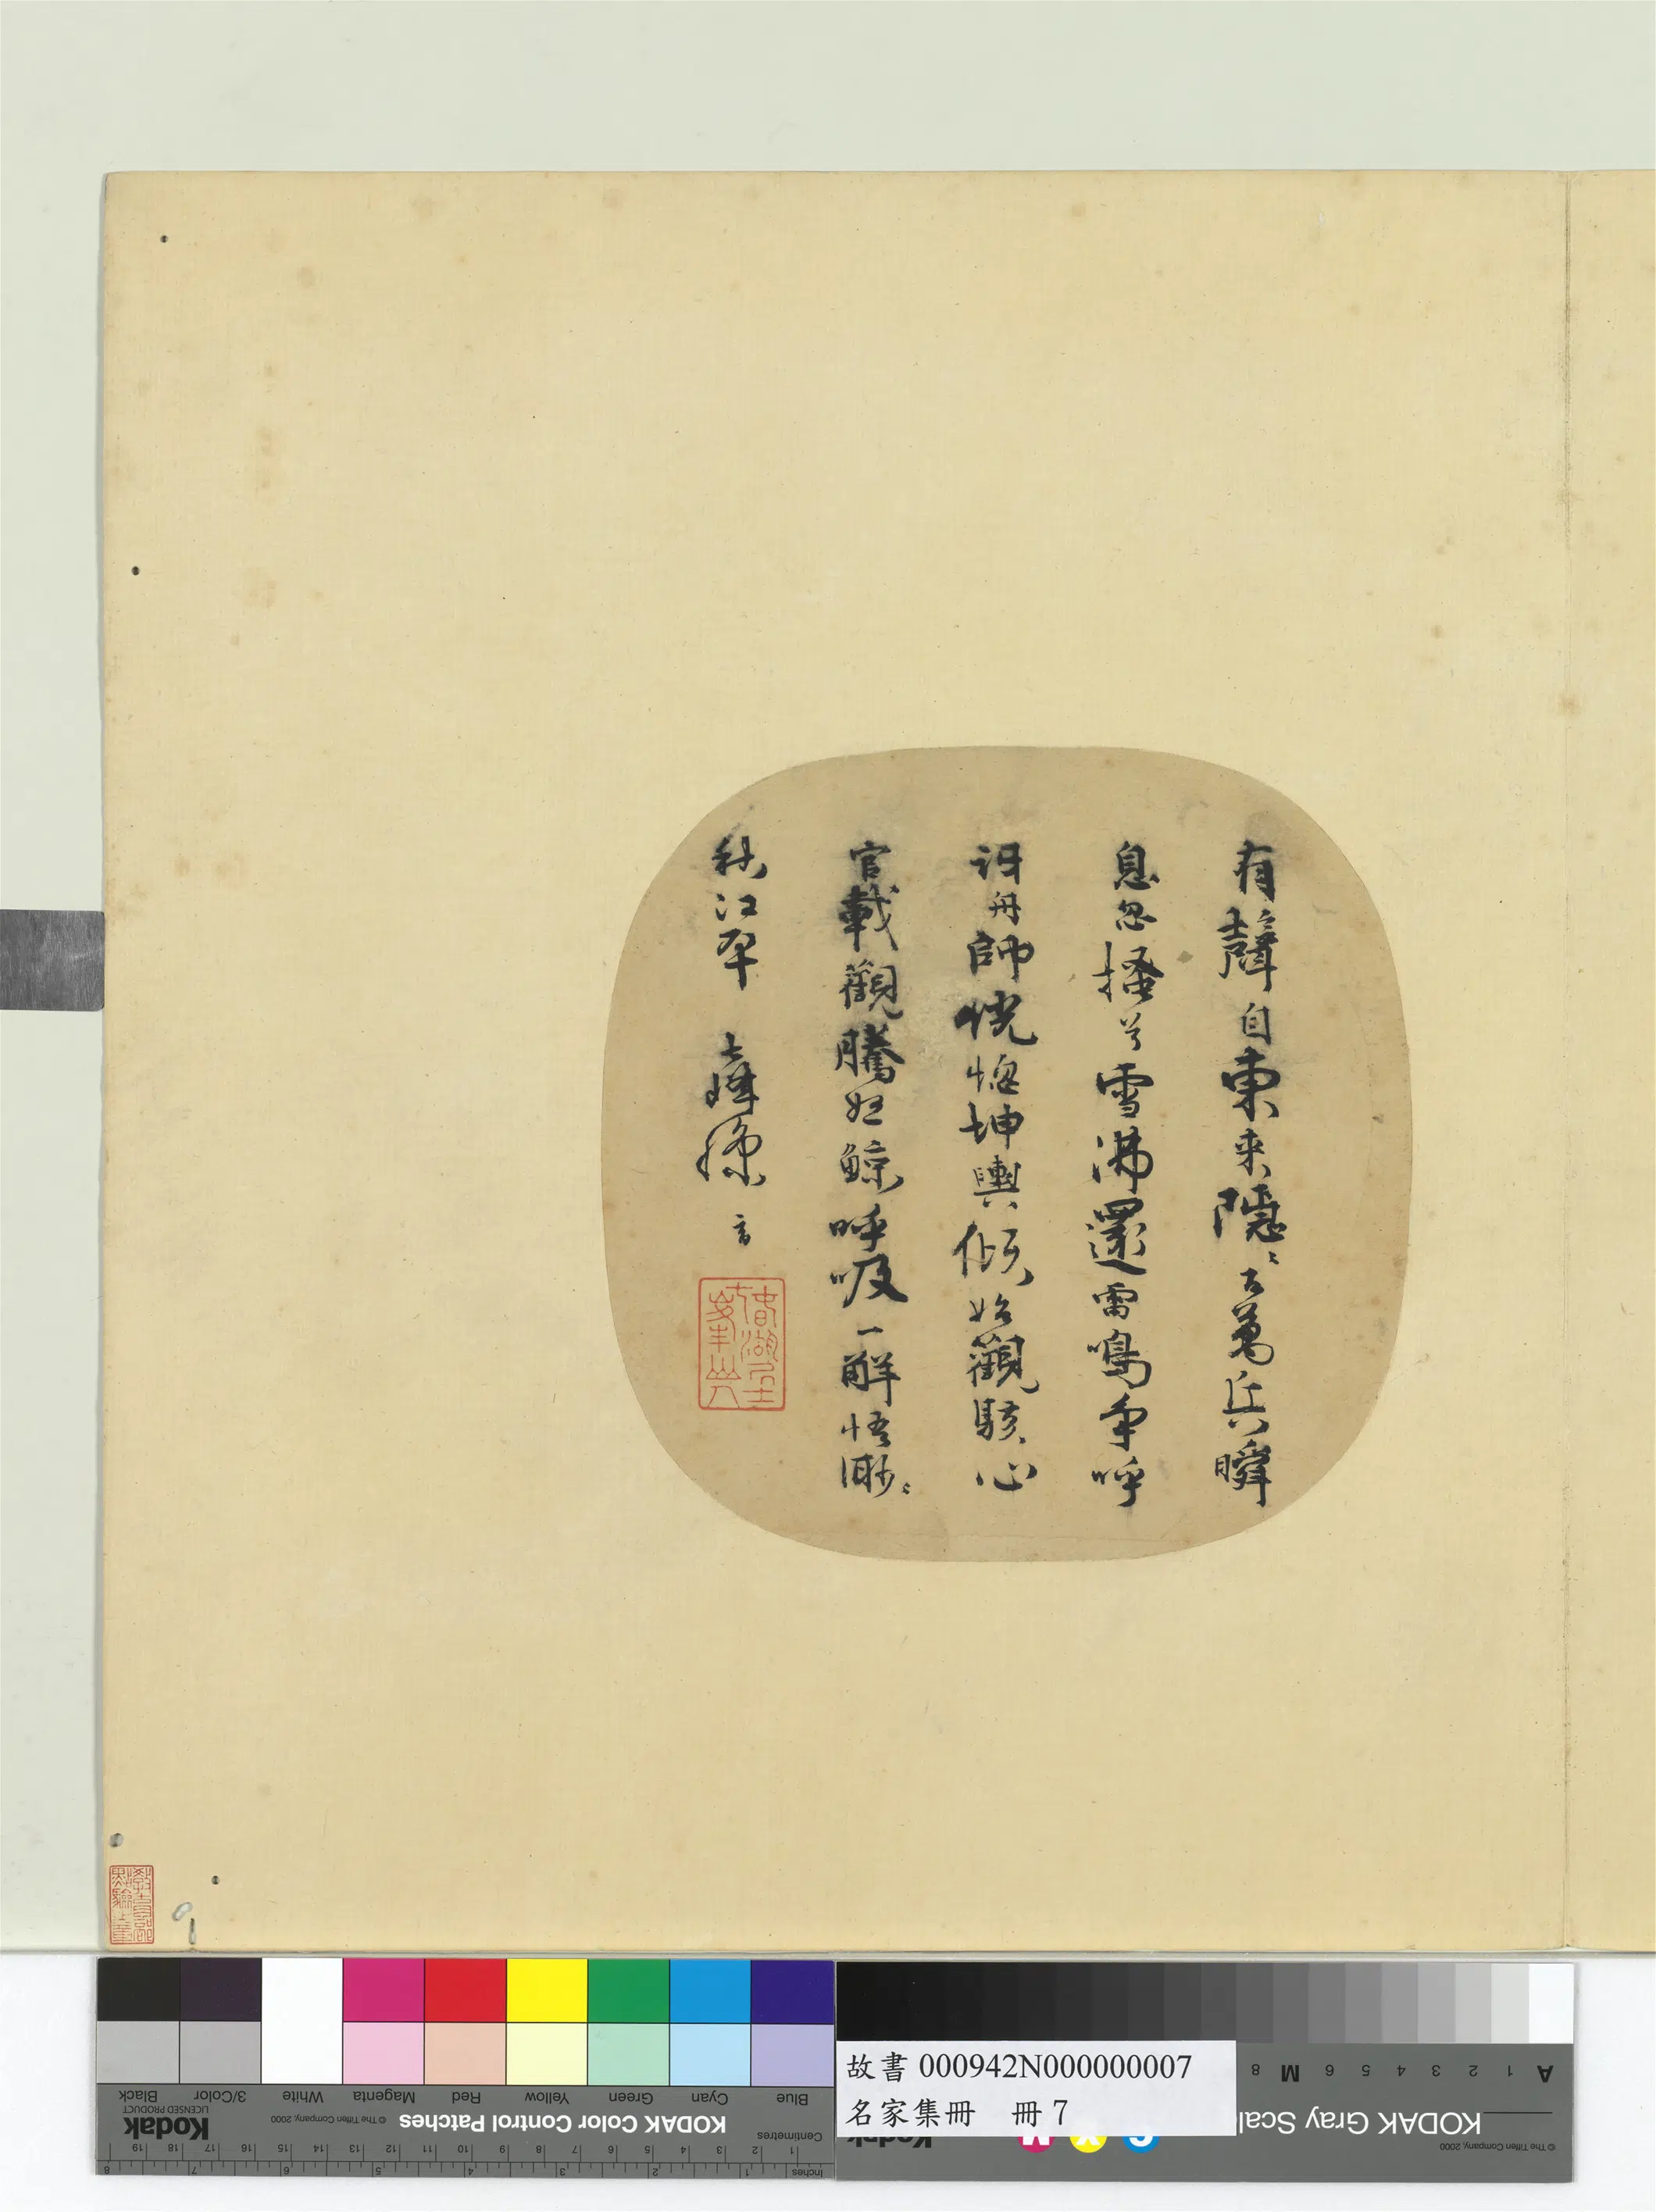 有聲自東來隱〻百萬兵瞬
息忽搔首雪沸還雷鳴爭呼
訝舟師恍惚坤輿傾始觀駭心
官載觀騰怒鯨呼吸一解悟渺〻
秋江平
教育部點驗之章
故書 000942N000000007
名家集冊 冊 7
Blue Cyan Green Yellow Red Magenta White 3/Color Black
KODAK Color Control Patches © The Tiffen Company, 2000 Kodak LICENSED PRODUCT
Centimetres 1 2 3 4 5 6 7 8 9 10 11 12 13 14 15 16 17 18 19
Inches 1 2 3 4 5 6 7 8
A 1 2 3 4 5 6 M 8
KODAK Gray Scal
© The Tiffen Company, 2000
Kodak
C Y M